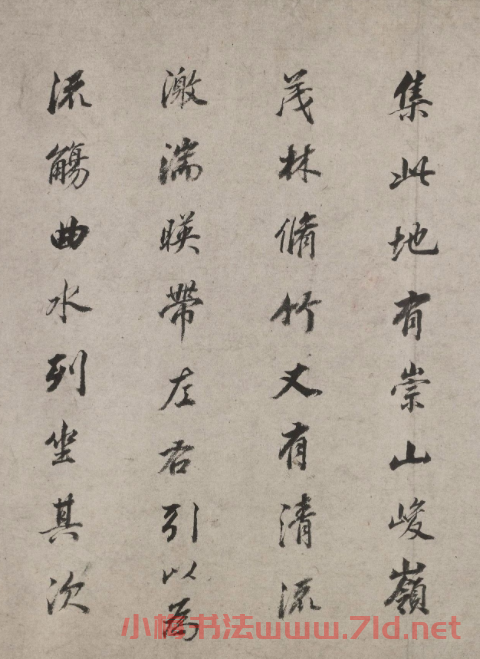 集此地有崇山峻嶺
茂林脩竹又有清流
激湍暎帶左右引以為
流觴曲水列坐其次
小楷书法www.7ld.net